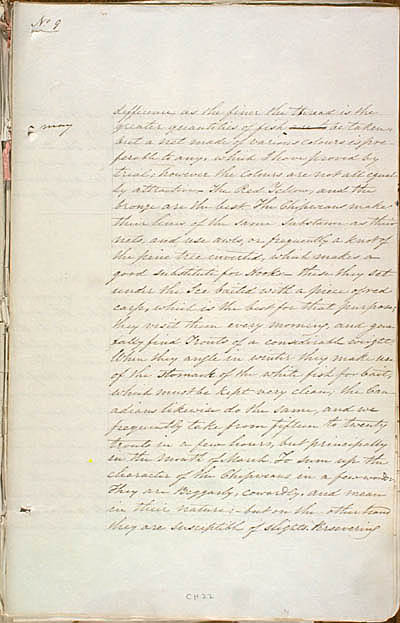 No 9
difference as the finer the thread is the
may
greater quantities of fish be taken,
but a net made of various colours is pre-
ferable to any, which I have proved by
trial; however the colours are not all equal-
ly attractive. The Red, Yellow, and the
bronze are the best. The Chipewans make
their lines of the same substance as their
nets, and use awls or frequently a knot of
the pine tree inverted, which makes a
good substitute for Hooks. these they set
under the Ice baited with a piece of red
carp, which is the best for that purpose,
they visit them every morning, and gene-
rally find Trouts of a considerable weight.
When they angle in winter they make use
of the stomack of the white fish for bait,
which must be kept very clean; the Can-
adians likewise do the same, and we
frequently take from fifteen to twenty
trouts in a few hours, but principally
in the month of March. To sum up the
character of the Chipweans in a few words
They are Beggarly, cowardly, and mean
in their nature; but on the other hand
they are susceptible of slights Persevering
CH22